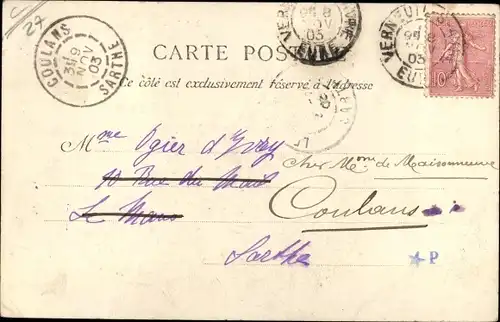 27
COULANS
9
NOV
03
SARTHE
VERNEUIL
8
NOV
03
EURE
VERNEUIL
8
NOV
03
EURE
10
CARTE POSTALE
Ce côté est exclusivement réservé à l'adresse
Mme Ogier d'Ivry
chez Mme de Maisonneuve
10 Rue du Mail
Le Mans
Coulans
Sarthe
P